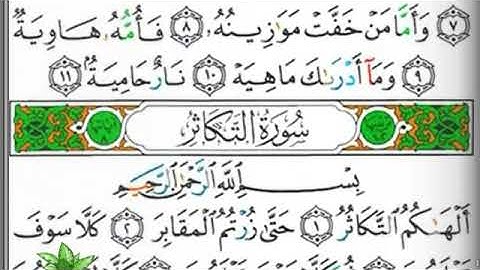 ٧ وَأَمَّا مَنْ خَفَّتْ مَوَٰزِينُهُۥ ٨ فَأُمُّهُۥ هَاوِيَةٌ
٩ وَمَآ أَدْرَىٰكَ مَا هِيَهْ ١٠ نَارٌ حَامِيَةٌۢ ١١
سُورَةُ التَّكَاثُرِ
بِسْمِ ٱللَّهِ ٱلرَّحْمَٰنِ ٱلرَّحِيمِ
أَلْهَىٰكُمُ ٱلتَّكَاثُرُ ١ حَتَّىٰ زُرْتُمُ ٱلْمَقَابِرَ ٢ كَلَّا سَوْفَ